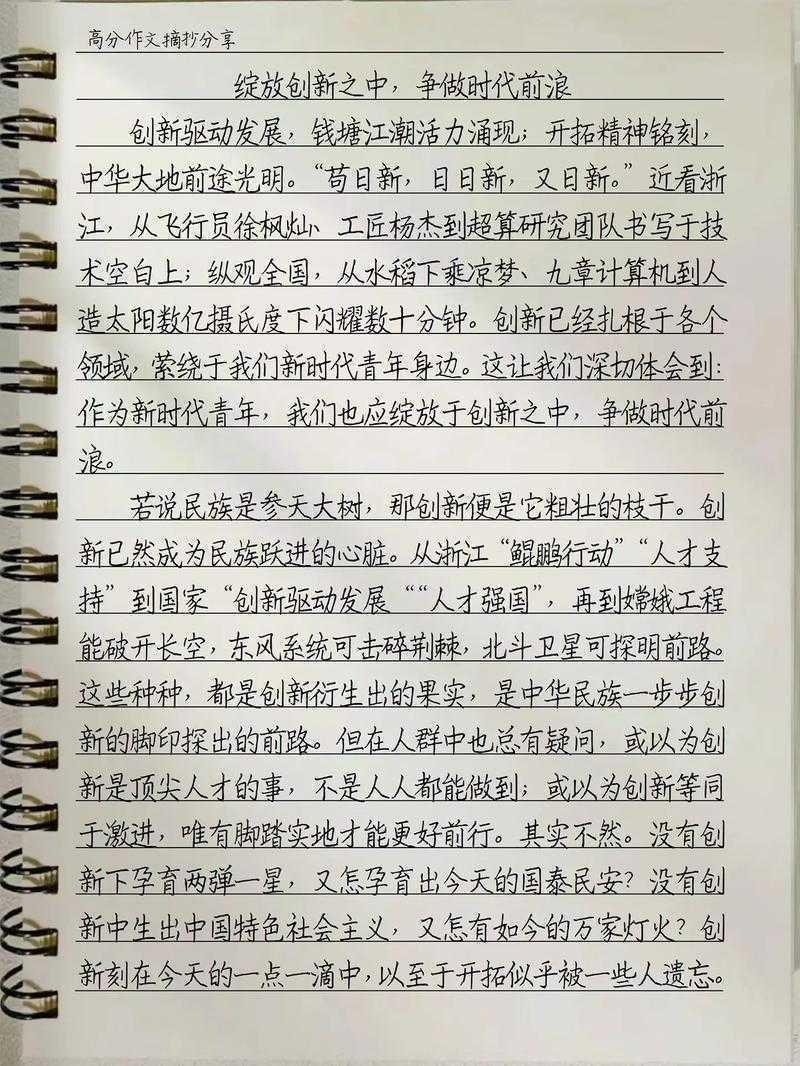 高分作文摘抄分享
绽放创新之中，争做时代前浪
创新驱动发展，钱塘江潮活力涌现；开拓精神铭刻，
中华大地前途光明。“苟日新，日日新，又日新。”近看浙
江，从飞行员徐枫灿、工匠杨杰到超算研究团队书写于技
术空白上；纵观全国，从水稻下乘凉梦、九章计算机到人
造太阳数亿摄氏度下闪耀数十分钟。创新已经扎根于各个
领域，萦绕于我们新时代青年身边。这让我们深切体会到：
作为新时代青年，我们也应绽放于创新之中，争做时代前
浪。
若说民族是参天大树，那创新便是它粗壮的枝干。创
新已然成为民族跃进的心脏。从浙江“鲲鹏行动”“人才支
持”到国家“创新驱动发展““人才强国”，再到嫦娥工程
能破开长空，东风系统可击碎荆棘，北斗卫星可探明前路。
这些种种，都是创新衍生出的果实，是中华民族一步步创
新的脚印探出的前路。但在人群中也总有疑问，或以为创
新是顶尖人才的事，不是人人都能做到；或以为创新等同
于激进，唯有脚踏实地才能更好前行。其实不然。没有创
新下孕育两弹一星，又怎孕育出今天的国泰民安？没有创
新中生出中国特色社会主义，又怎有如今的万家灯火？创
新刻在今天的一点一滴中，以至于开拓似乎被一些人遗忘。